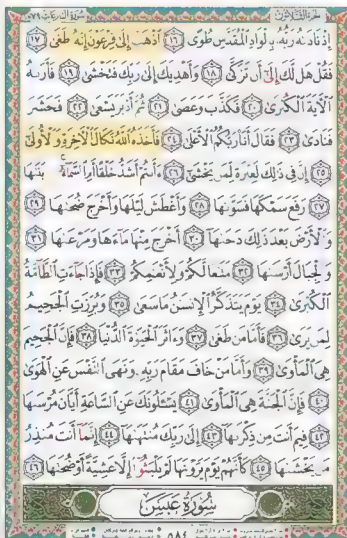 سورة النازعات ٧٩
إِذْ نَادَىٰهُ رَبُّهُۥ بِٱلْوَادِ ٱلْمُقَدَّسِ طُوًى ١٦ ٱذْهَبْ إِلَىٰ فِرْعَوْنَ إِنَّهُۥ طَغَىٰ ١٧
فَقُلْ هَل لَّكَ إِلَىٰٓ أَن تَزَكَّىٰ ١٨ وَأَهْدِيَكَ إِلَىٰ رَبِّكَ فَتَخْشَىٰ ١٩ فَأَرَىٰهُ
ٱلْءَايَةَ ٱلْكُبْرَىٰ ٢٠ فَكَذَّبَ وَعَصَىٰ ٢١ ثُمَّ أَدْبَرَ يَسْعَىٰ ٢٢ فَحَشَرَ
فَنَادَىٰ ٢٣ فَقَالَ أَنَا۠ رَبُّكُمُ ٱلْأَعْلَىٰ ٢٤ فَأَخَذَهُ ٱللَّهُ نَكَالَ ٱلْءَاخِرَةِ وَٱلْأُولَىٰٓ
٢٥ إِنَّ فِى ذَٰلِكَ لَعِبْرَةً لِّمَن يَخْشَىٰٓ ٢٦ ءَأَنتُمْ أَشَدُّ خَلْقًا أَمِ ٱلسَّمَآءُ ۚ بَنَىٰهَا
٢٧ رَفَعَ سَمْكَهَا فَسَوَّىٰهَا ٢٨ وَأَغْطَشَ لَيْلَهَا وَأَخْرَجَ ضُحَىٰهَا ٢٩
وَٱلْأَرْضَ بَعْدَ ذَٰلِكَ دَحَىٰهَآ ٣٠ أَخْرَجَ مِنْهَا مَآءَهَا وَمَرْعَىٰهَا ٣١
وَٱلْجِبَالَ أَرْسَىٰهَا ٣٢ مَتَٰعًا لَّكُمْ وَلِأَنْعَٰمِكُمْ ٣٣ فَإِذَا جَآءَتِ ٱلطَّآمَّةُ
ٱلْكُبْرَىٰ ٣٤ يَوْمَ يَتَذَكَّرُ ٱلْإِنسَٰنُ مَا سَعَىٰ ٣٥ وَبُرِّزَتِ ٱلْجَحِيمُ
لِمَن يَرَىٰ ٣٦ فَأَمَّا مَن طَغَىٰ ٣٧ وَءَاثَرَ ٱلْحَيَوٰةَ ٱلدُّنْيَا ٣٨ فَإِنَّ ٱلْجَحِيمَ
هِىَ ٱلْمَأْوَىٰ ٣٩ وَأَمَّا مَنْ خَافَ مَقَامَ رَبِّهِۦ وَنَهَى ٱلنَّفْسَ عَنِ ٱلْهَوَىٰ
٤٠ فَإِنَّ ٱلْجَنَّةَ هِىَ ٱلْمَأْوَىٰ ٤١ يَسْـَٔلُونَكَ عَنِ ٱلسَّاعَةِ أَيَّانَ مُرْسَىٰهَا
٤٢ فِيمَ أَنتَ مِن ذِكْرَىٰهَآ ٤٣ إِلَىٰ رَبِّكَ مُنتَهَىٰهَآ ٤٤ إِنَّمَآ أَنتَ مُنذِرُ
مَن يَخْشَىٰهَا ٤٥ كَأَنَّهُمْ يَوْمَ يَرَوْنَهَا لَمْ يَلْبَثُوٓا۟ إِلَّا عَشِيَّةً أَوْ ضُحَىٰهَا ٤٦
سُورَةُ عَبَسَ
٥٨٤